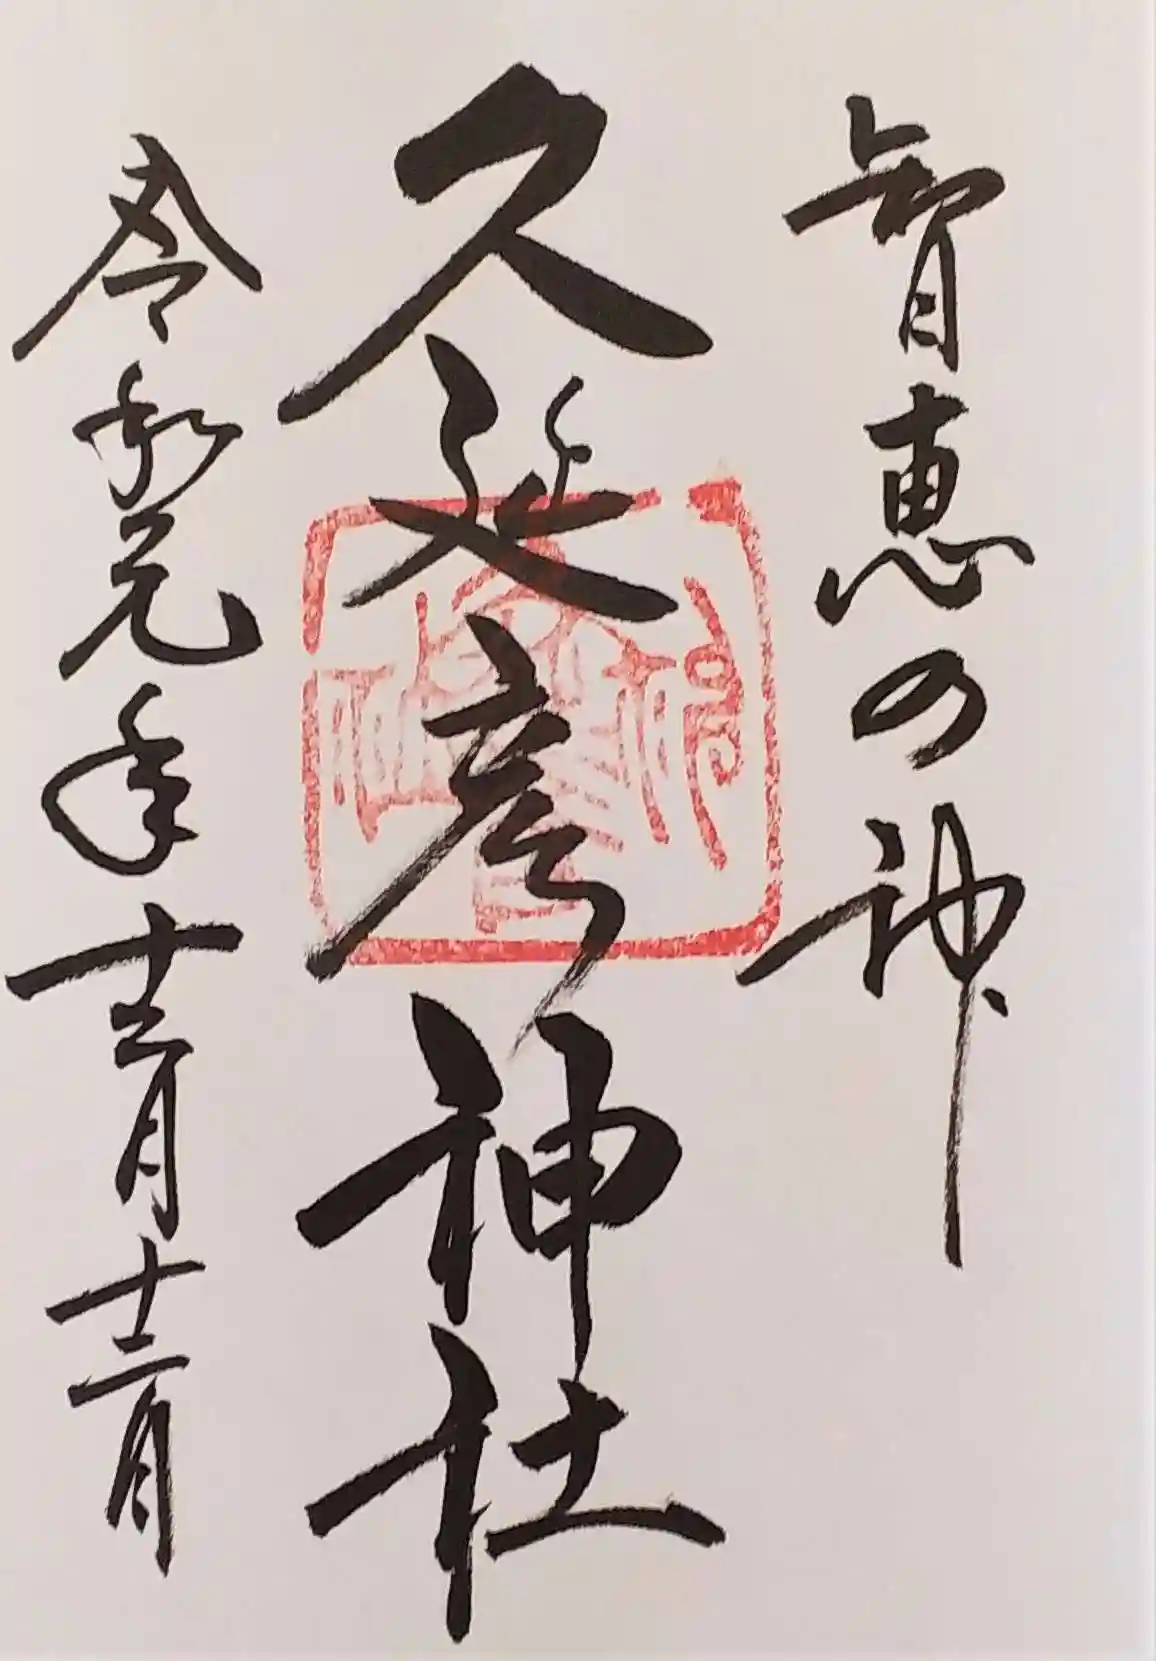 智恵の神
久延彦神社
令和元年十二月十二日